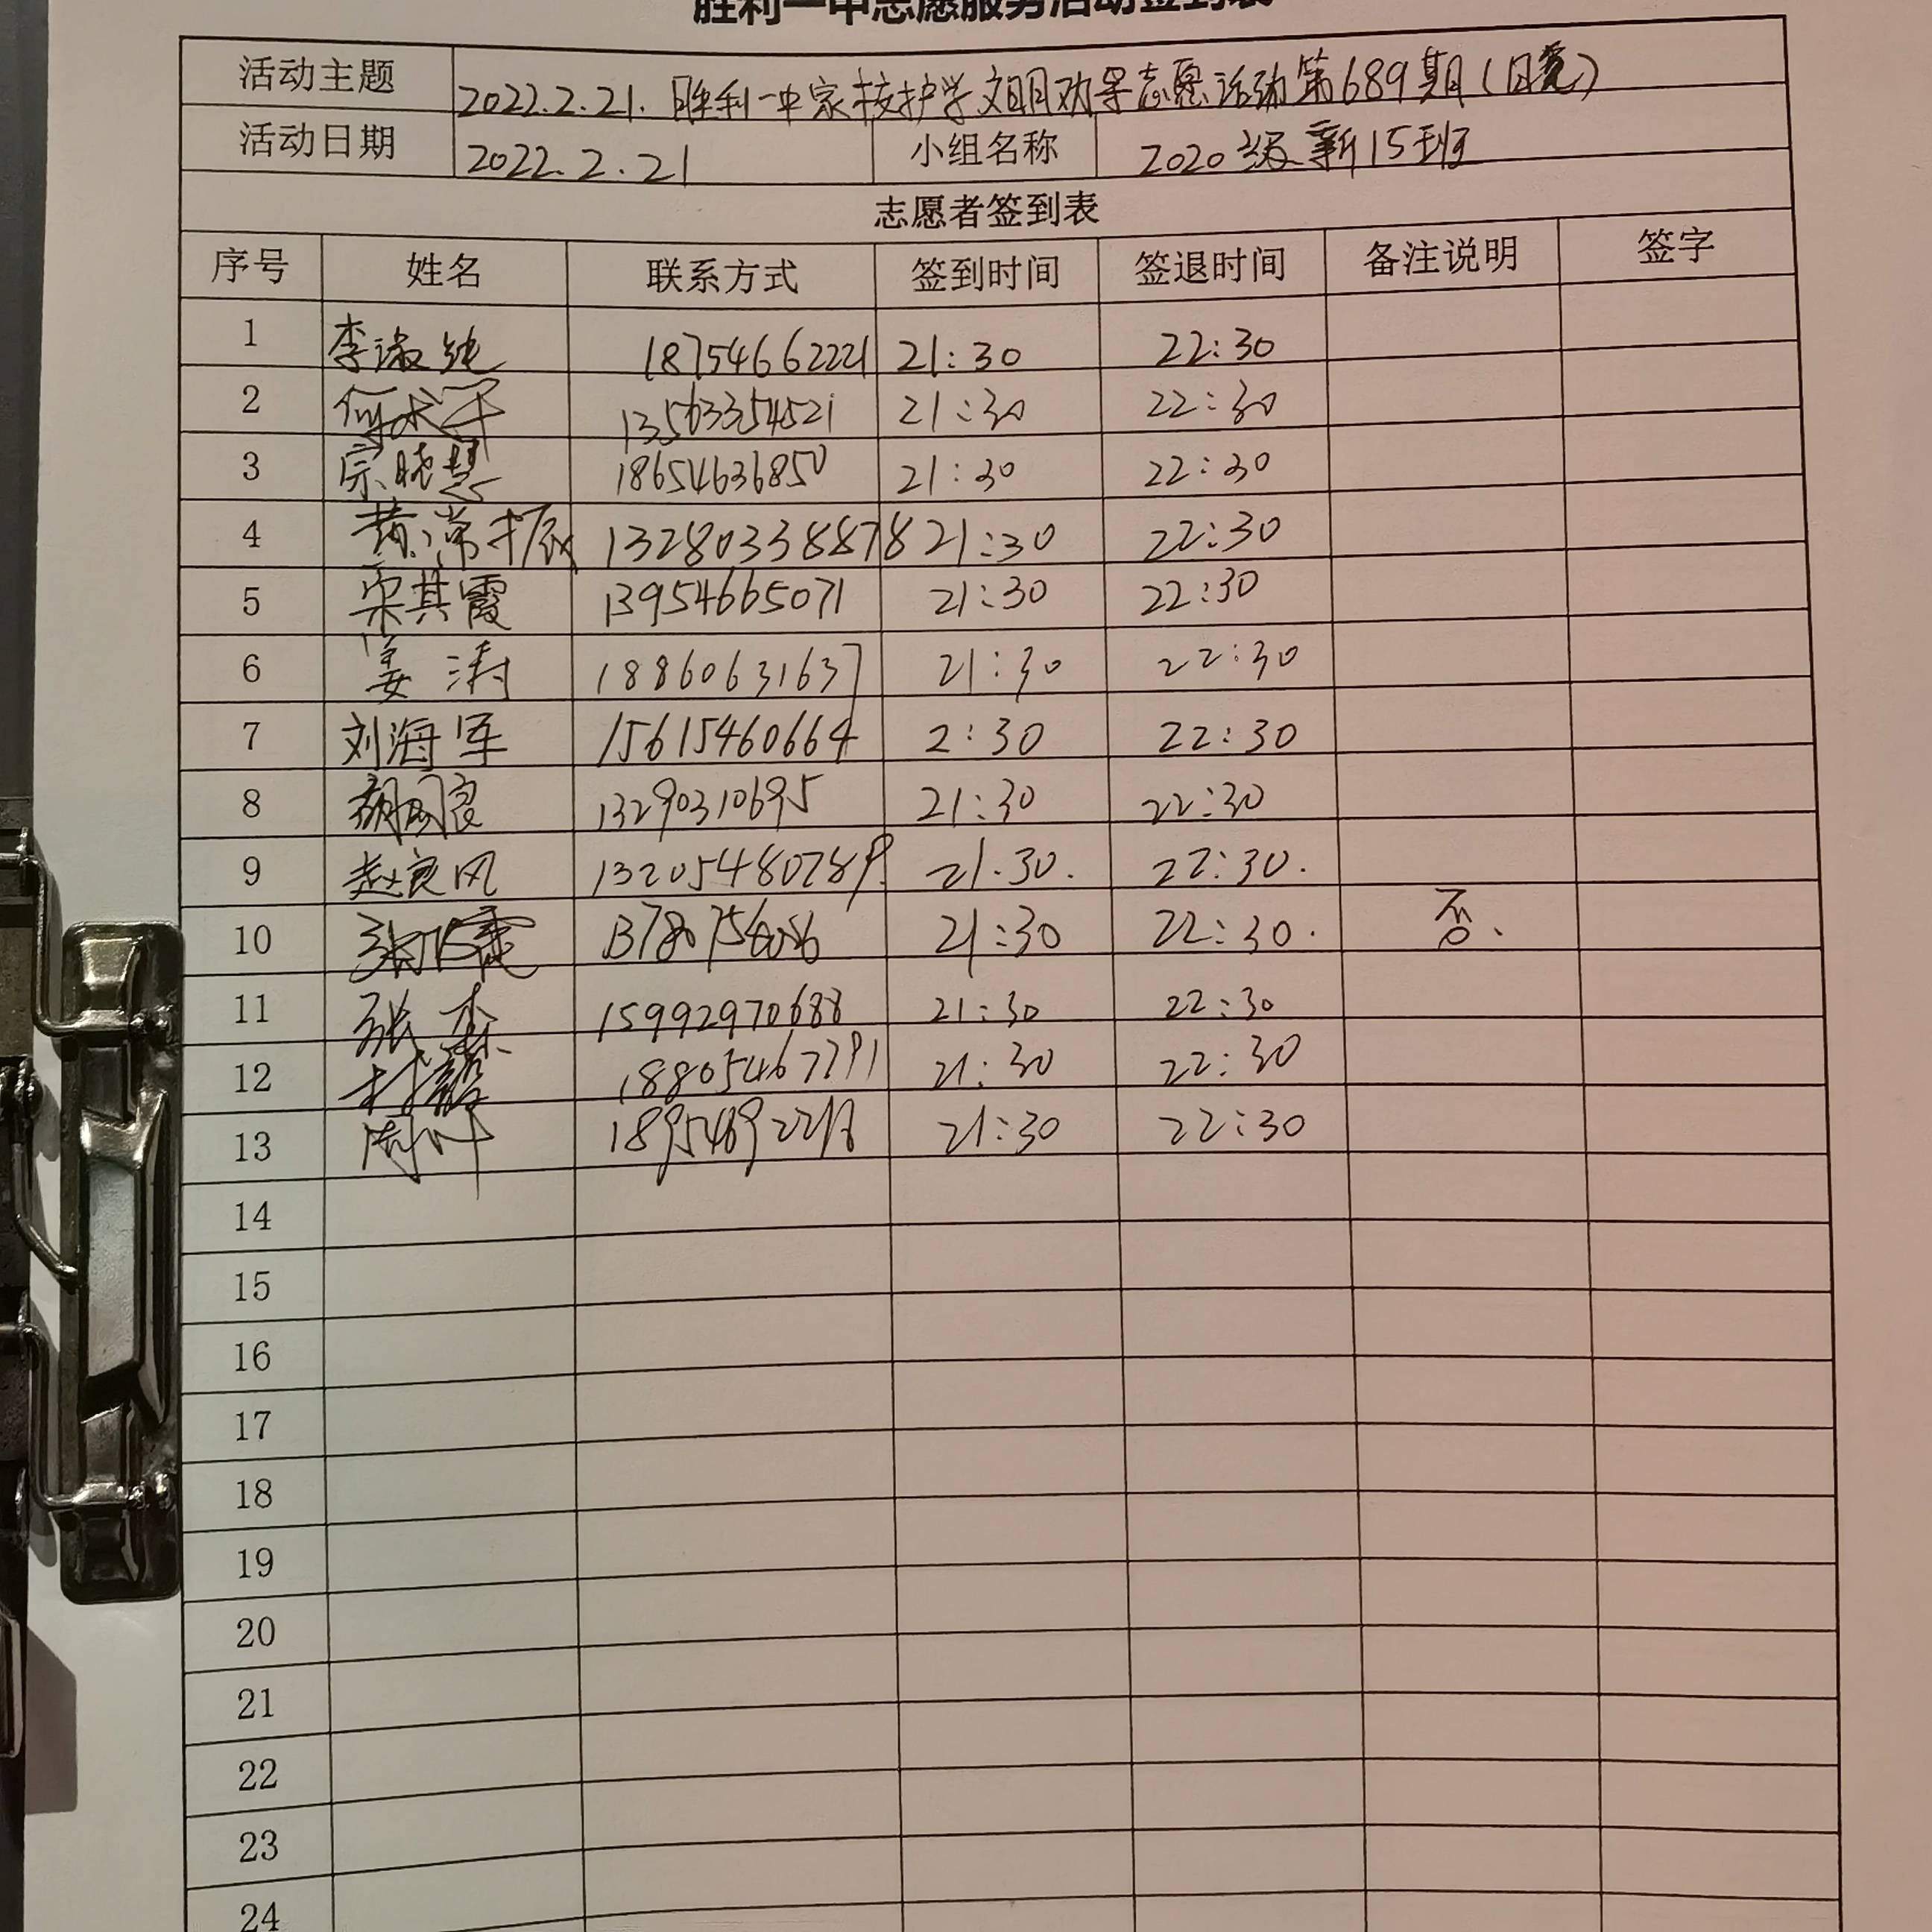 胜利一中志愿服务活动签到表
活动主题 2022.2.21.胜利一中家校护学文明劝导志愿活动第689期(日竞)
活动日期 2022.2.21 小组名称 2020级新15班
志愿者签到表
序号 姓名 联系方式 签到时间 签退时间 备注说明 签字
1 李淑纯 18754662221 21:30 22:30
2 13563354521 21:30 22:30
3 宗晓慧 18654636850 21:30 22:30
4 黄常振 132803388878 21:30 22:30
5 栾其霞 13954665071 21:30 22:30
6 姜涛 18860631637 21:30 22:30
7 刘海军 15615460664 2:30 22:30
8 胡国良 13290310695 21:30 22:30
9 赵良风 13205480789. 21.30. 22:30.
10 21:30 22:30. 否.
11 张杰 15992970688 21:30 22:30
12 18805467791 21:30 22:30
13 周叶 21:30 22:30
14
15
16
17
18
19
20
21
22
23
24